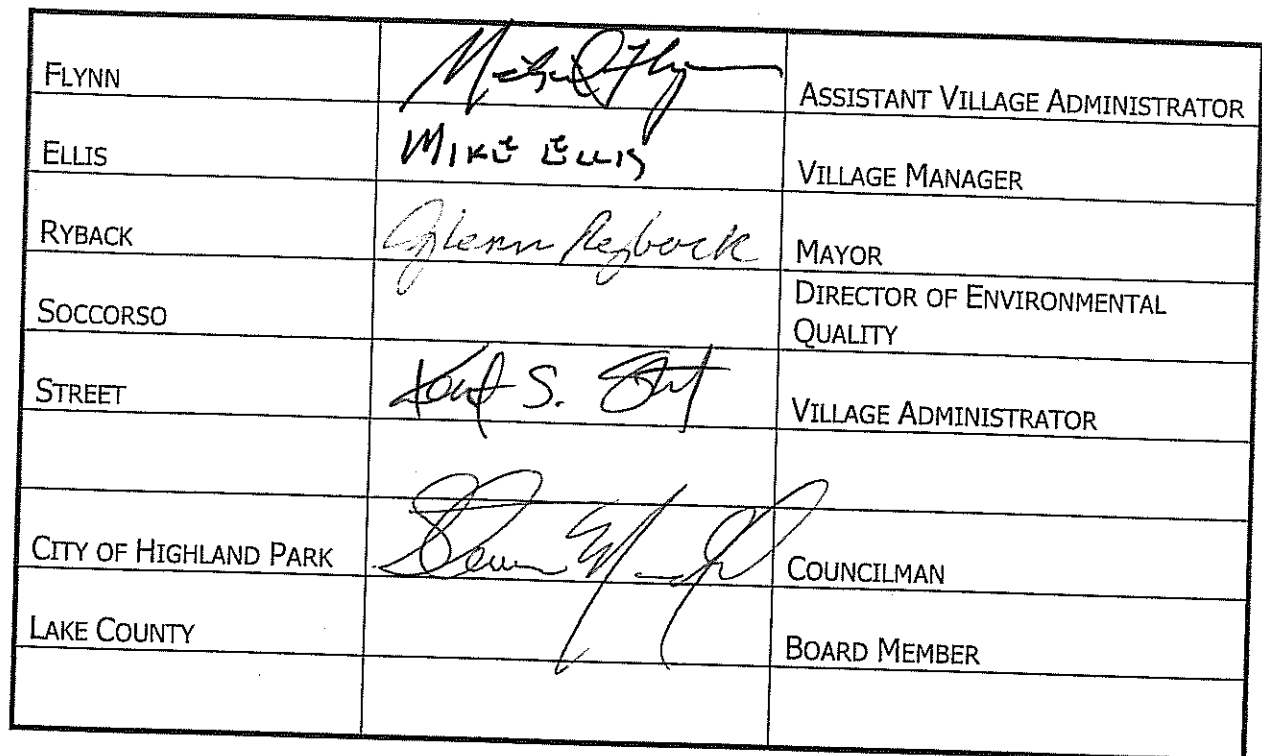 FLYNN
ASSISTANT VILLAGE ADMINISTRATOR
ELLIS
MIKE ELLIS
VILLAGE MANAGER
RYBACK
Glenn Ryback
MAYOR
SOCCORSO
DIRECTOR OF ENVIRONMENTAL
QUALITY
STREET
S.
VILLAGE ADMINISTRATOR
CITY OF HIGHLAND PARK
COUNCILMAN
LAKE COUNTY
BOARD MEMBER